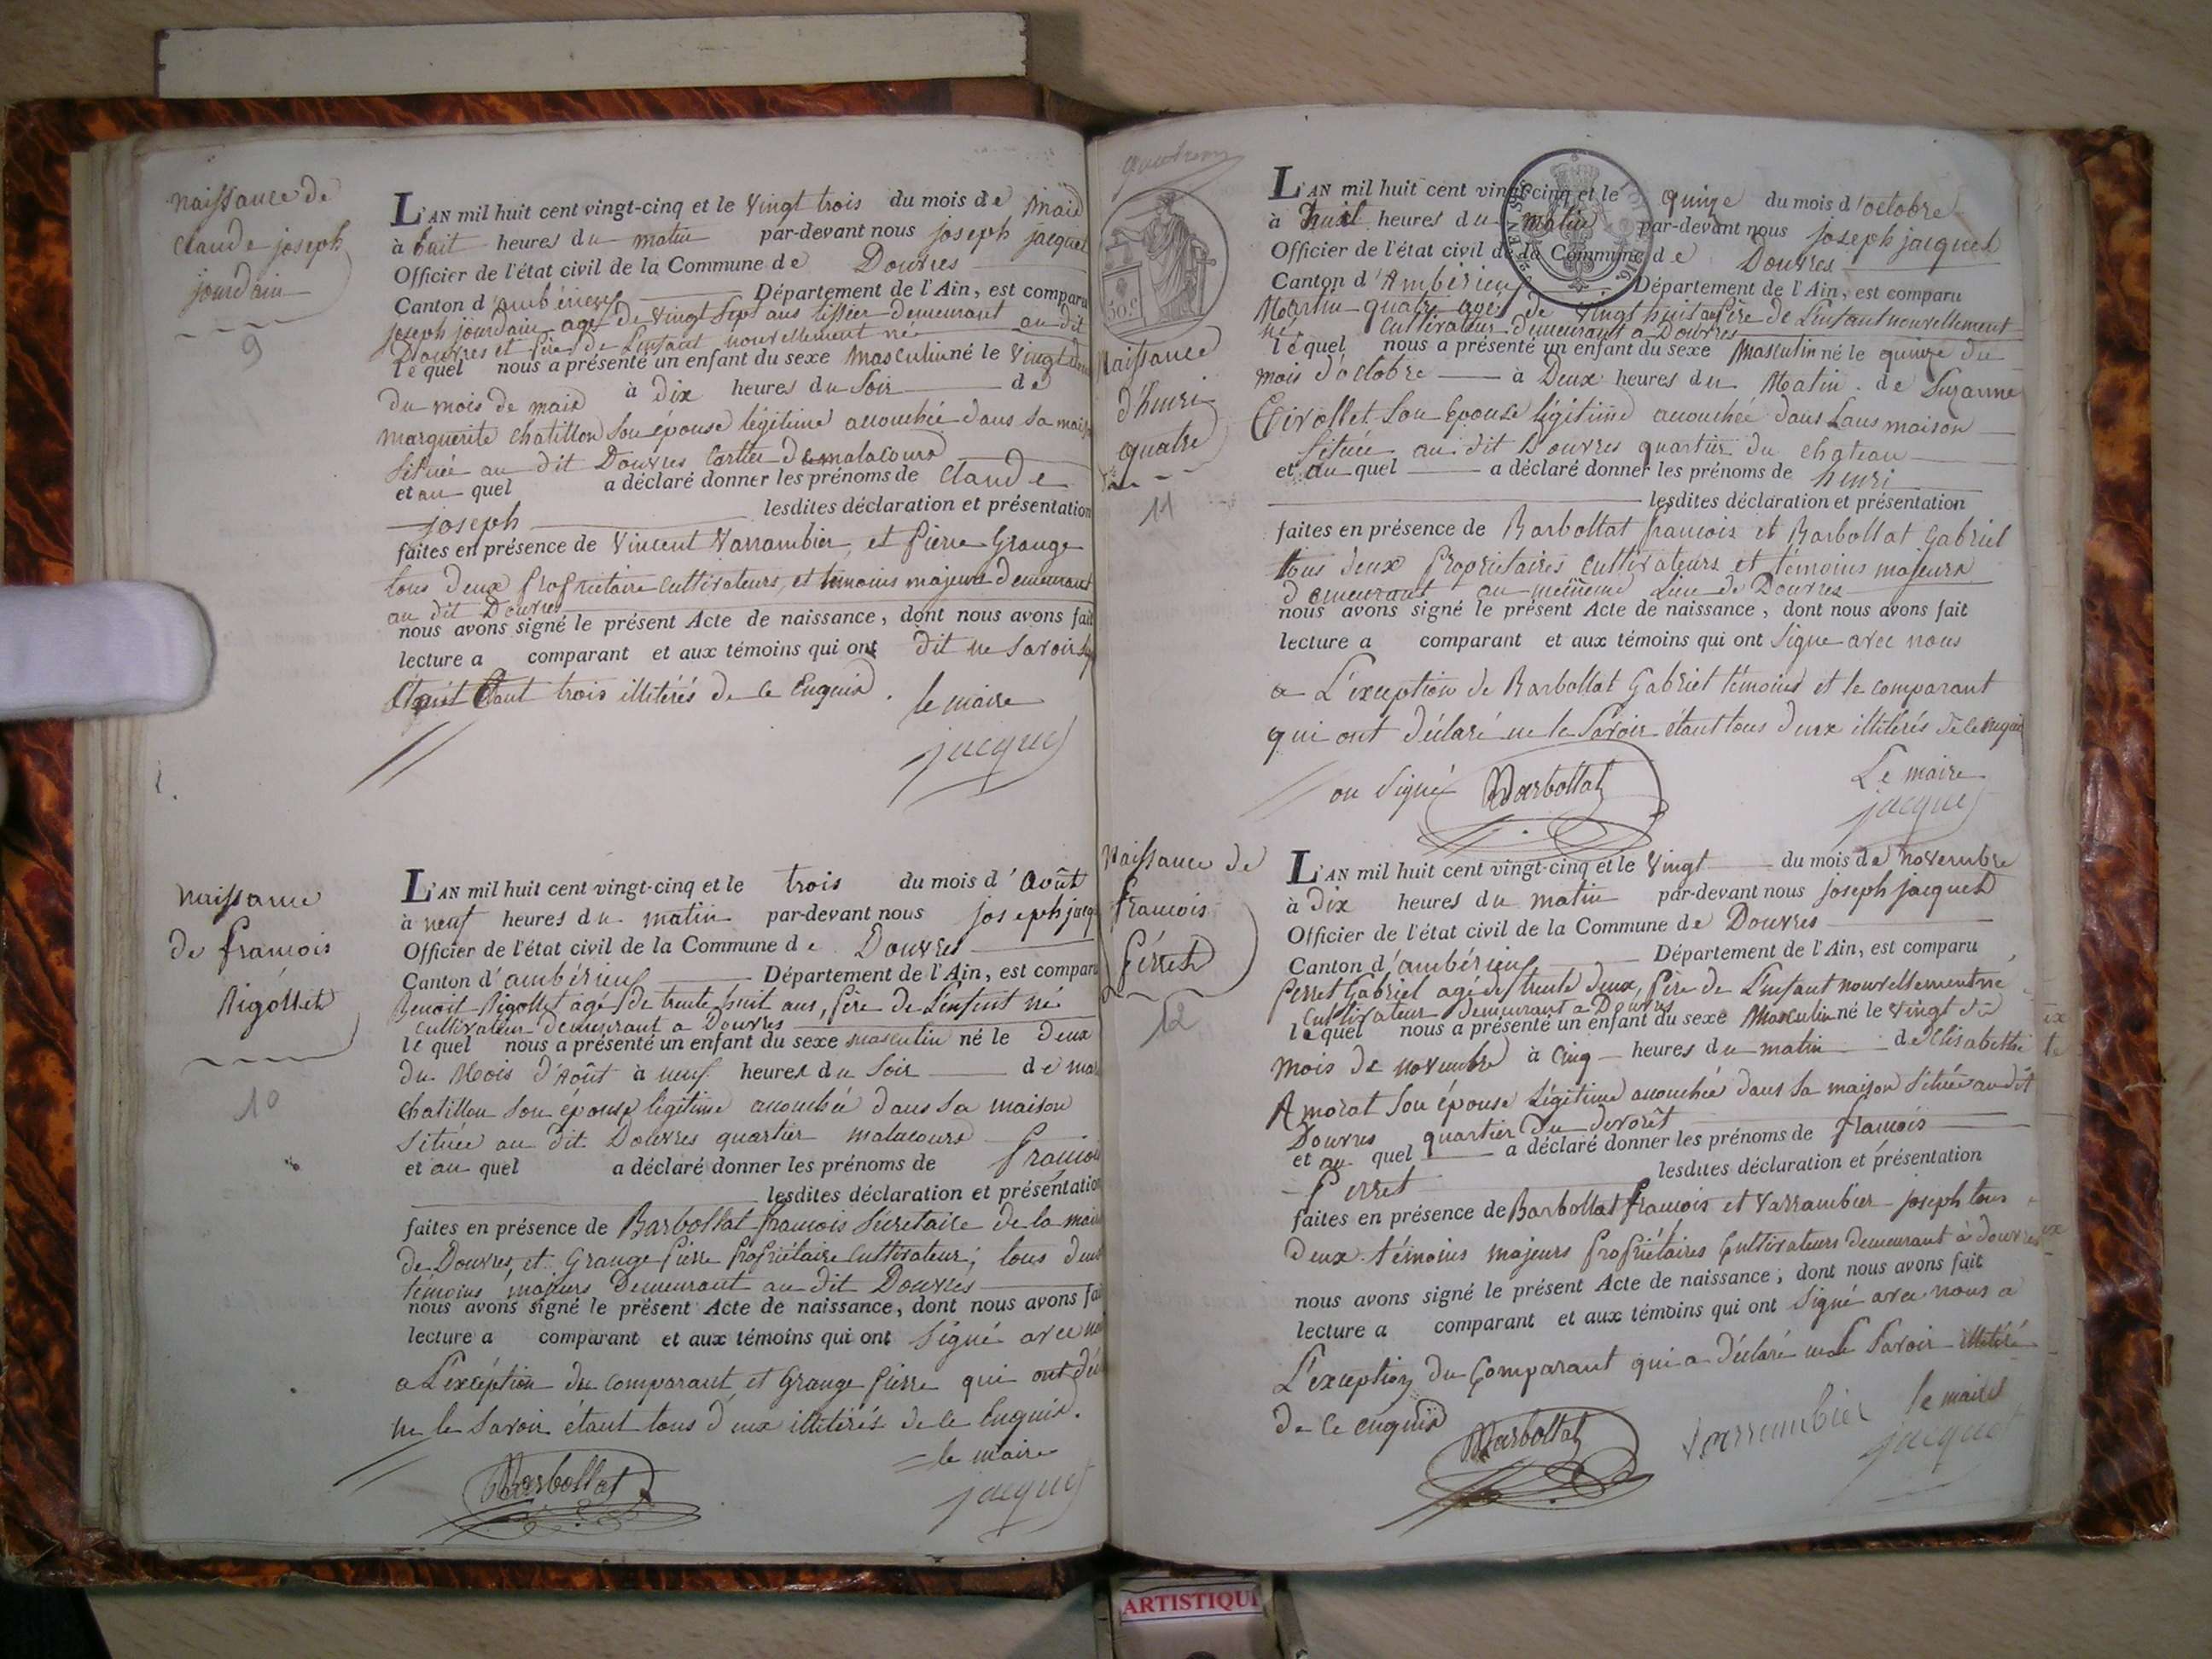 Naissance de
Claude joseph
jourdain
9
L'AN mil huit cent vingt-cinq et le Vingt trois du mois de Maid
à huit heures du matin par-devant nous joseph jacquet
Officier de l'état civil de la Commune de Douvres
Canton d'ambérieux Département de l'Ain, est comparu
joseph jourdain agé de vingt sept ans tissier demeurant au dit
Douvres et père de L'enfant nouvellement né
lequel nous a présenté un enfant du sexe Masculin né le Vingt deux
du mois de maid à dix heures du Soir de
Marguerite chatillon son épouse légitime accouchée dans sa maison
Située au dit Douvres Cartier de malacourd
et au quel a déclaré donner les prénoms de Claude
joseph lesdites déclaration et présentation
faites en présence de Vincent Varrambier, et pierre Grange
tous deux propriétaire cultivateurs, et temoins majeurs demeurant
au dit Douvres
nous avons signé le présent Acte de naissance, dont nous avons fait
lecture a comparant et aux témoins qui ont dit ne savoir
étant trois illitérés de ce Enquis. le maire
jacquet
Naissance
de francois
Rigollet
10
L'AN mil huit cent vingt-cinq et le trois du mois d'Août
à neuf heures du matin par-devant nous joseph jacq
Officier de l'état civil de la Commune de Douvres
Canton d'ambérieux Département de l'Ain, est comparu
Benoit Rigollet agé de trente huit ans, père de L'enfent né
cultivateur demeurant a Douvres
lequel nous a présenté un enfant du sexe masculin né le deux
du Mois d'Août à neuf heures du Soir de mar
chatillon son épouse légitime accouchée dans sa maison
située au dit Douvres quartier malacourd
et au quel a déclaré donner les prénoms de francois
lesdites déclaration et présentation
faites en présence de Barbollat francois Sécretaire de la mairie
de Douvres, et Grange pierre propriétaire Cultivateur; tous deux
témoins majeurs Demeurant au dit Douvres
nous avons signé le présent Acte de naissance, dont nous avons fait
lecture a comparant et aux témoins qui ont Signé avec nous
a L'exception du comparant et Grange pierre qui ont dé
ne le Savoir étant tous deux illitérés de ce Enquis.
le maire
Barbollat jacquet
50 c
Naissance
d'henri
quatre
11
L'AN mil huit cent vingt-cinq et le quinze du mois d'octobre
à huit heures du matin par-devant nous joseph jacquet
Officier de l'état civil de la Commune de Douvres
Canton d'Ambérieux Département de l'Ain, est comparu
Martin quatre agé de Vingt huit ans père de L'enfant nouvellement
né cultivateur demeurant a Douvres
lequel nous a présenté un enfant du sexe Masculin né le quinze du
mois d'octobre à Deux heures du Matin de Suzanne
Girollet Son Epouse légitime accouchée dans Sans maison
Située au dit Douvres quartier du chateau
et au quel a déclaré donner les prénoms de henri
lesdites déclaration et présentation
faites en présence de Barbollat francois et Barbollat Gabriel
tous deux Propriétaires cultivateurs et témoins majeurs
demeurant au meinème Lieu de Douvres
nous avons signé le présent Acte de naissance, dont nous avons fait
lecture a comparant et aux témoins qui ont Signe avec nous
a L'exception de Barbollat Gabriel témoins et le comparant
qui ont déclaré ne le Savoir étant tous deux illitérés de ce enquis
on Signé Barbollat Le maire
jacquet
Naissance de
francois
Perret
12
L'AN mil huit cent vingt-cinq et le Vingt du mois de Novembre
à Dix heures du matin par-devant nous joseph jacquet
Officier de l'état civil de la Commune de Douvres
Canton d'ambérieux Département de l'Ain, est comparu
Perret Gabriel agé de trente deux, père de L'enfant nouvellement né
cultivateur demeurant a Douvres
lequel nous a présenté un enfant du sexe Masculin né le Vingt du
mois de novembre à Cinq heures du matin de Elisabethe
Amorat Son épouse Légitime accouchée dans sa maison Située au dit
Douvres quartier du
et au quel a déclaré donner les prénoms de francois
Perret lesdites déclaration et présentation
faites en présence de Barbollat francois et Varrambier joseph tous
deux témoins majeurs propriétaires Cultivateurs demeurant à douvres
nous avons signé le présent Acte de naissance, dont nous avons fait
lecture a comparant et aux témoins qui ont Signé avec nous a
L'exception du Comparant qui a déclaré ne le Savoir illitéré
de ce enquis Barbollat Varrambier le maire
jacquet
ARTISTIQU